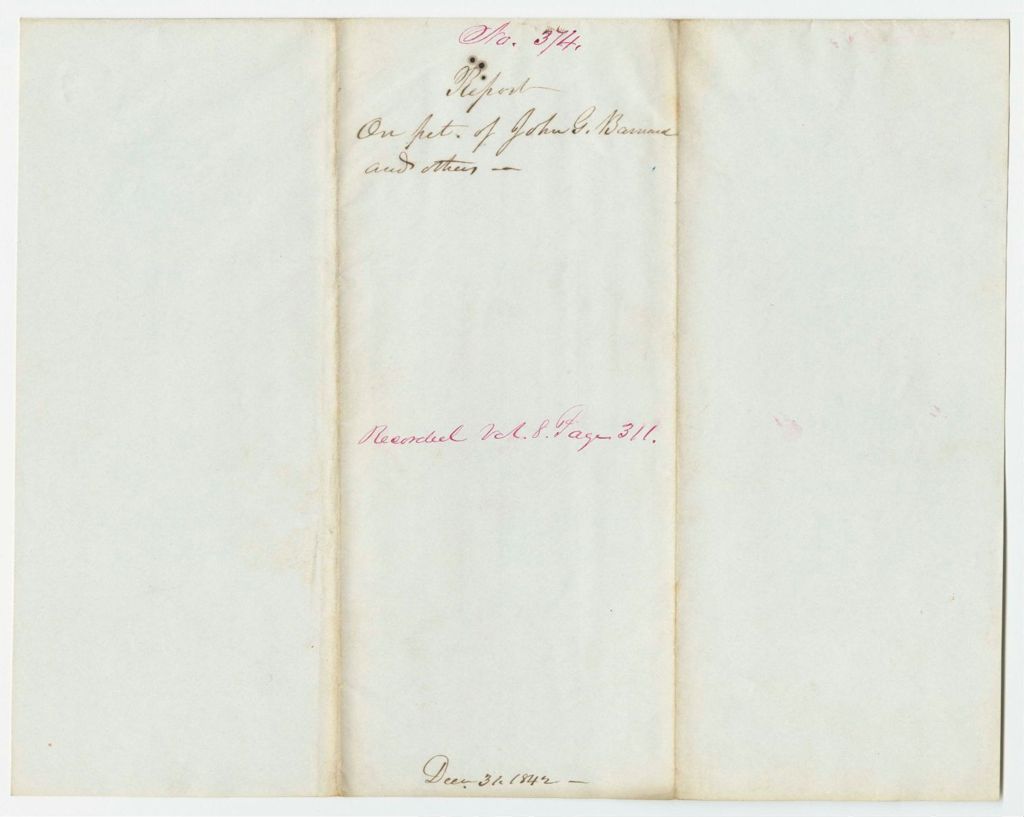 No. 374.
Report
On pet. of John G. Barnard
and others —
Recorded Vol. 8. Page 311.
Decr 31. 1842 —